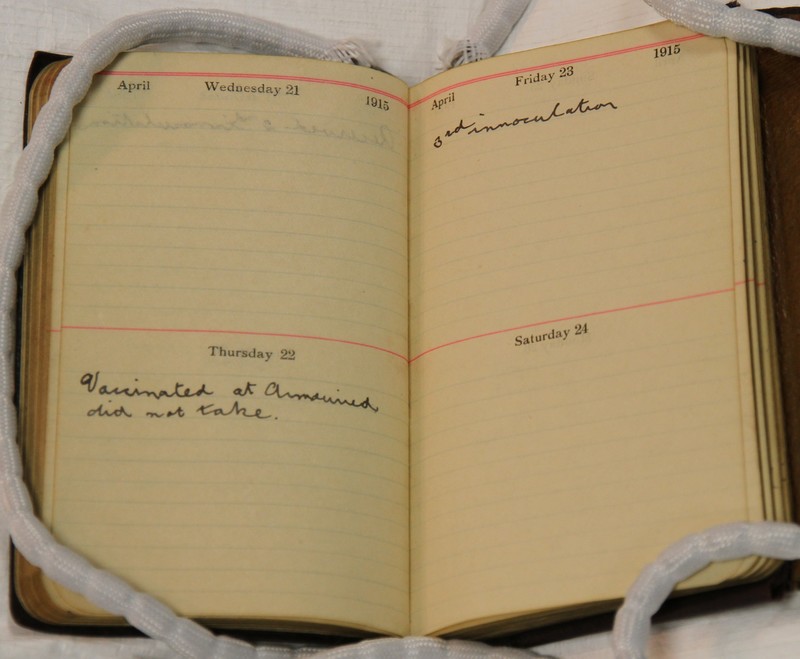 April Wednesday 21 1915
Thursday 22
Vaccinated at Armouries
did not take.
April Friday 23 1915
3rd innoculation
Saturday 24